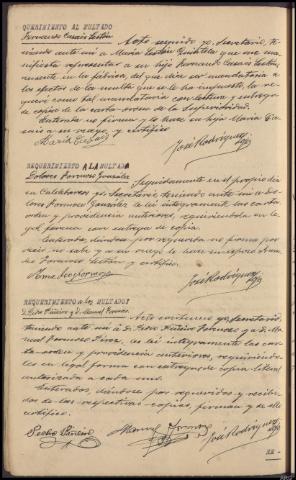 QUERIMIENTO AL MULTADO
Fernando Casais Lestón
Acto seguido yo, Secretario, te-
niendo ante mi a María Lestón Quintela que me ma-
nifiesta representar a su hijo Fernando Casais Lestón,
en la fábrica, del que dice ser mandataria a
los efectos de la multa que se le ha impuesto, la re-
querí como tal mandataria con lectura y entrega
de copia de la carta-orden de la Superioridad.
Enterada no firma y lo hace su hijo María Ca-
sais a su ruego, y certifico
María Casais
José Rodríguez
REQUERIMIENTO A LA MULTADA
Dolores Fornos González
Seguidamente en el propio día
en Calabares yo, Secretario teniendo ante mi a Do-
lores Fornos González le leí integramente la carta
orden y providencia anteriores, requiriéndola en le-
gal forma con entrega de copia.
Enterada, dándose por requerida no firma por
no saber y a su ruego lo hace
y certifico.
José Rodríguez
REQUERIMIENTO a los MULTADOS
D. Pedro Piñeiro y D. Manuel Fornos
Acto continuo yo, Secretario,
teniendo ante mi a D. Pedro Piñeiro Fornos y a D. Ma-
nuel Fornos Pérez, les leí integramente la car-
ta-orden y providencia anteriores, requiriéndo-
les en legal forma con entrega de copia literal
autorizada a cada uno.
Enterados, dándose por requeridos y recibi-
das las respectivas copias, firman y de ello
certifico.
Pedro Piñeiro
Manuel Fornos
José Rodríguez